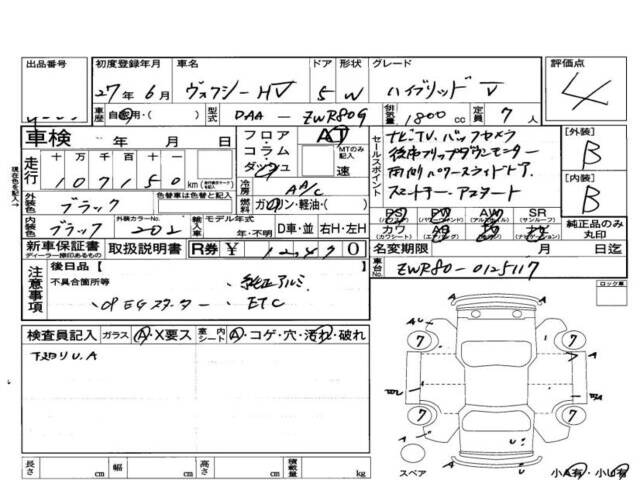 出品番号 初度登録年月 車名 ドア 形状 グレード 評価点
27年6月 ヴォクシーHV 5 W ハイブリッド V 4
車歴 自家用・( ) 型式 DAA - ZWR80G 排気量 1800 cc 定員 7 人
車検 年 月 日 フロア コラム ダッシュ AT MTのみ記入 速
セールスポイント ナビTV.バックカメラ
後席フリップダウンモニター
両側パワースライドドア
スマートキー.アスタート
[外装] B
[内装] B
走行 十 万 千 百 十 一
107150 km
冷房 AA/C
外装色 ブラック 色替車は色替色 燃料 ガソリン・軽油・( )
内装色 ブラック 外装カラーNo. 202 輸入車 モデル年式 年・不明 D車・並 右H・左H
PS PW AW SR (サンルーフ)
カワ (カワシート)
純正品のみ丸印
新車保証書 ディーラー捺印あるもの 取扱説明書 R券 ¥ 12,470
名変期限 月 日迄
車台No. ZWR80-0125117
注意事項 後日品【
不具合箇所等 ・純正アルミ
・OP EGスターター ・ETC
ロック車
検査員記入 ガラス A・X要ス 室内シート A・コゲ・穴・汚れ・破れ
下廻りU.A
7 7 7 7
A
U
スペア 小A有・小U有
長さ cm 幅 cm 高さ cm 積載量 kg
現在色を記入→